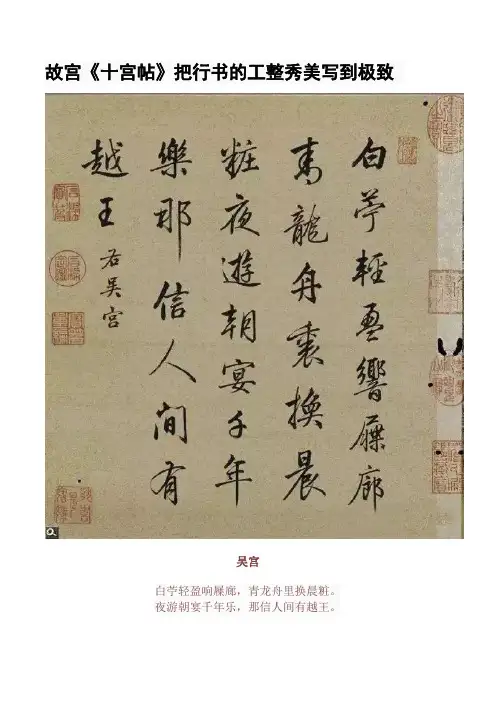 故宫《十宫帖》把行书的工整秀美写到极致
白苧輕盈響屧廊
青龍舟裏換晨
粧夜遊朝宴千年
樂那信人間有
越王
右吳宮
吴宫
白苧轻盈响屧廊，青龙舟里换晨粧。
夜游朝宴千年乐，那信人间有越王。